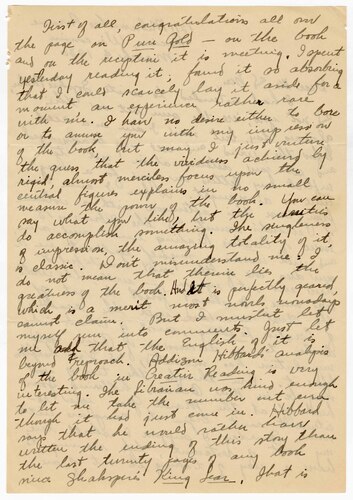 First of all, congratulations all over
the page on Pure Gold — on the book
and on the reception it is meeting. I spent
yesterday reading it; found it so absorbing
that I could scarcely lay it aside for a
moment an experience rather rare
with me. I have no desire either to bore
or to amuse you with my impression
of the book, but may I just venture
the guess, that the vividness achieved by
rigid, almost merciless focus upon the
central figures explains in no small
measure the power of the book. You can
say what you like, but the unities
do accomplish something. The singleness
of impression, the amazing totality of it,
is classic. Don't misunderstand me. I
do not mean that therein lies the
greatness of the book. And it is perfectly geared
which is a merit most novels nowadays
cannot claim. But I mustn't let
myself go into comments. Just let
me add that the English of it is
beyond reproach. Addison Hibbard's analysis
of the book in Creative Reading is very
interesting. The librarian was kind enough
to let me take the number out even
though it had just come in. Hibbard
says that he would rather have
written the ending of this story than
the last twenty pages of any book
since Shakspere's King Lear. That is